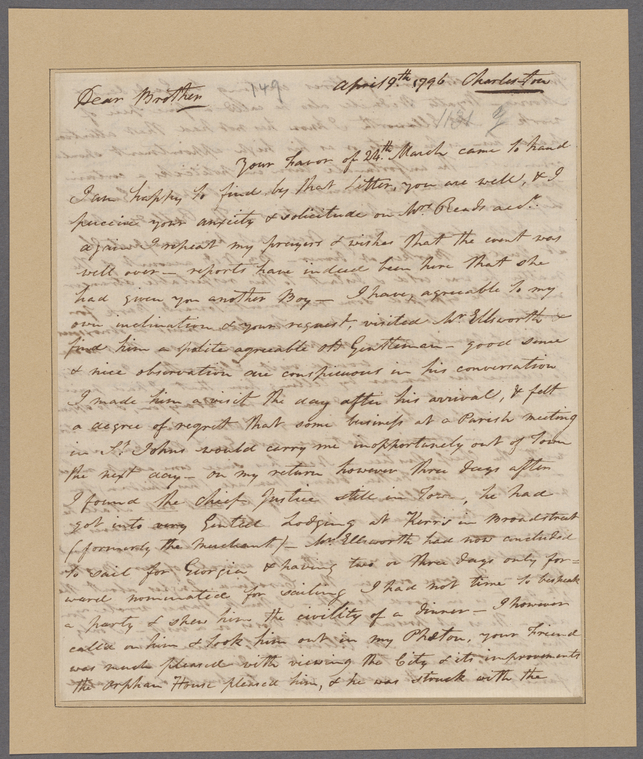 April 9.th 1796 Charleston
Dear Brother
Your Favor of 24th March came to hand
I am happy to find by that Letter, you are well, & I
perceive your anxiety & solicitude on Mrs Reads acct.
again I repeat my prayers & wishes that the event was
well over — reports have indeed been here that she
had given you another Boy — I have, agreable to my
own inclination & your request, visited Mr Ellsworth &
find him a polite agreable old Gentleman — good sense
& nice observation are conspicuous in his conversation
I made him a visit the day after his arrival, & felt
a degree of regret that some business at a Parish meeting
in St. Johns would carry me inopportunely out of Town
the next day — on my return however three days after
I found the Chief Justice still in Town, he had
got into very Genteel Lodging at Kerr's in Broadstreet
(formerly the Merchant) — Mr Ellsworth had now concluded
to sail for Georgia & having two or three days only for=
ward nominated for sailing I had not time to bespeak
a party & shew him the civility of a Dinner — I however
called on him & took him out in my Phaeton, your Friend
was much pleased with viewing the City & its improvements
the orphan House pleased him, & he was struck with the